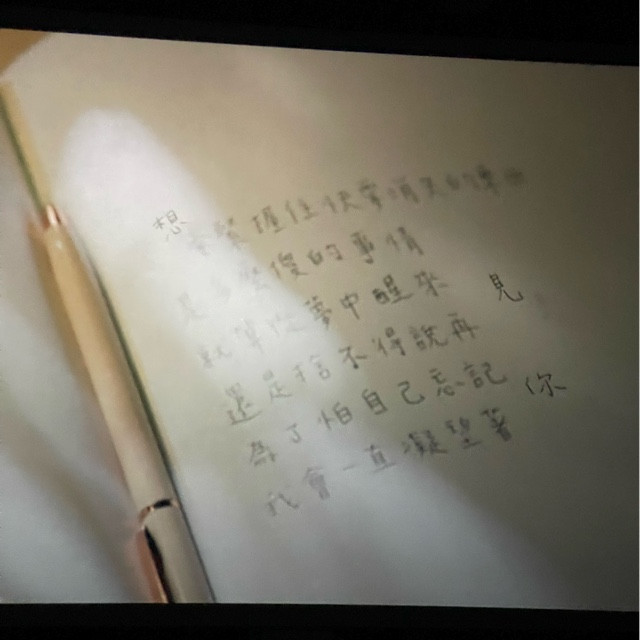 想要緊握住快要消失的
是多麼傻的事情
就算從夢中醒來
還是捨不得說再見
為了怕自己忘記
我會一直凝望著你